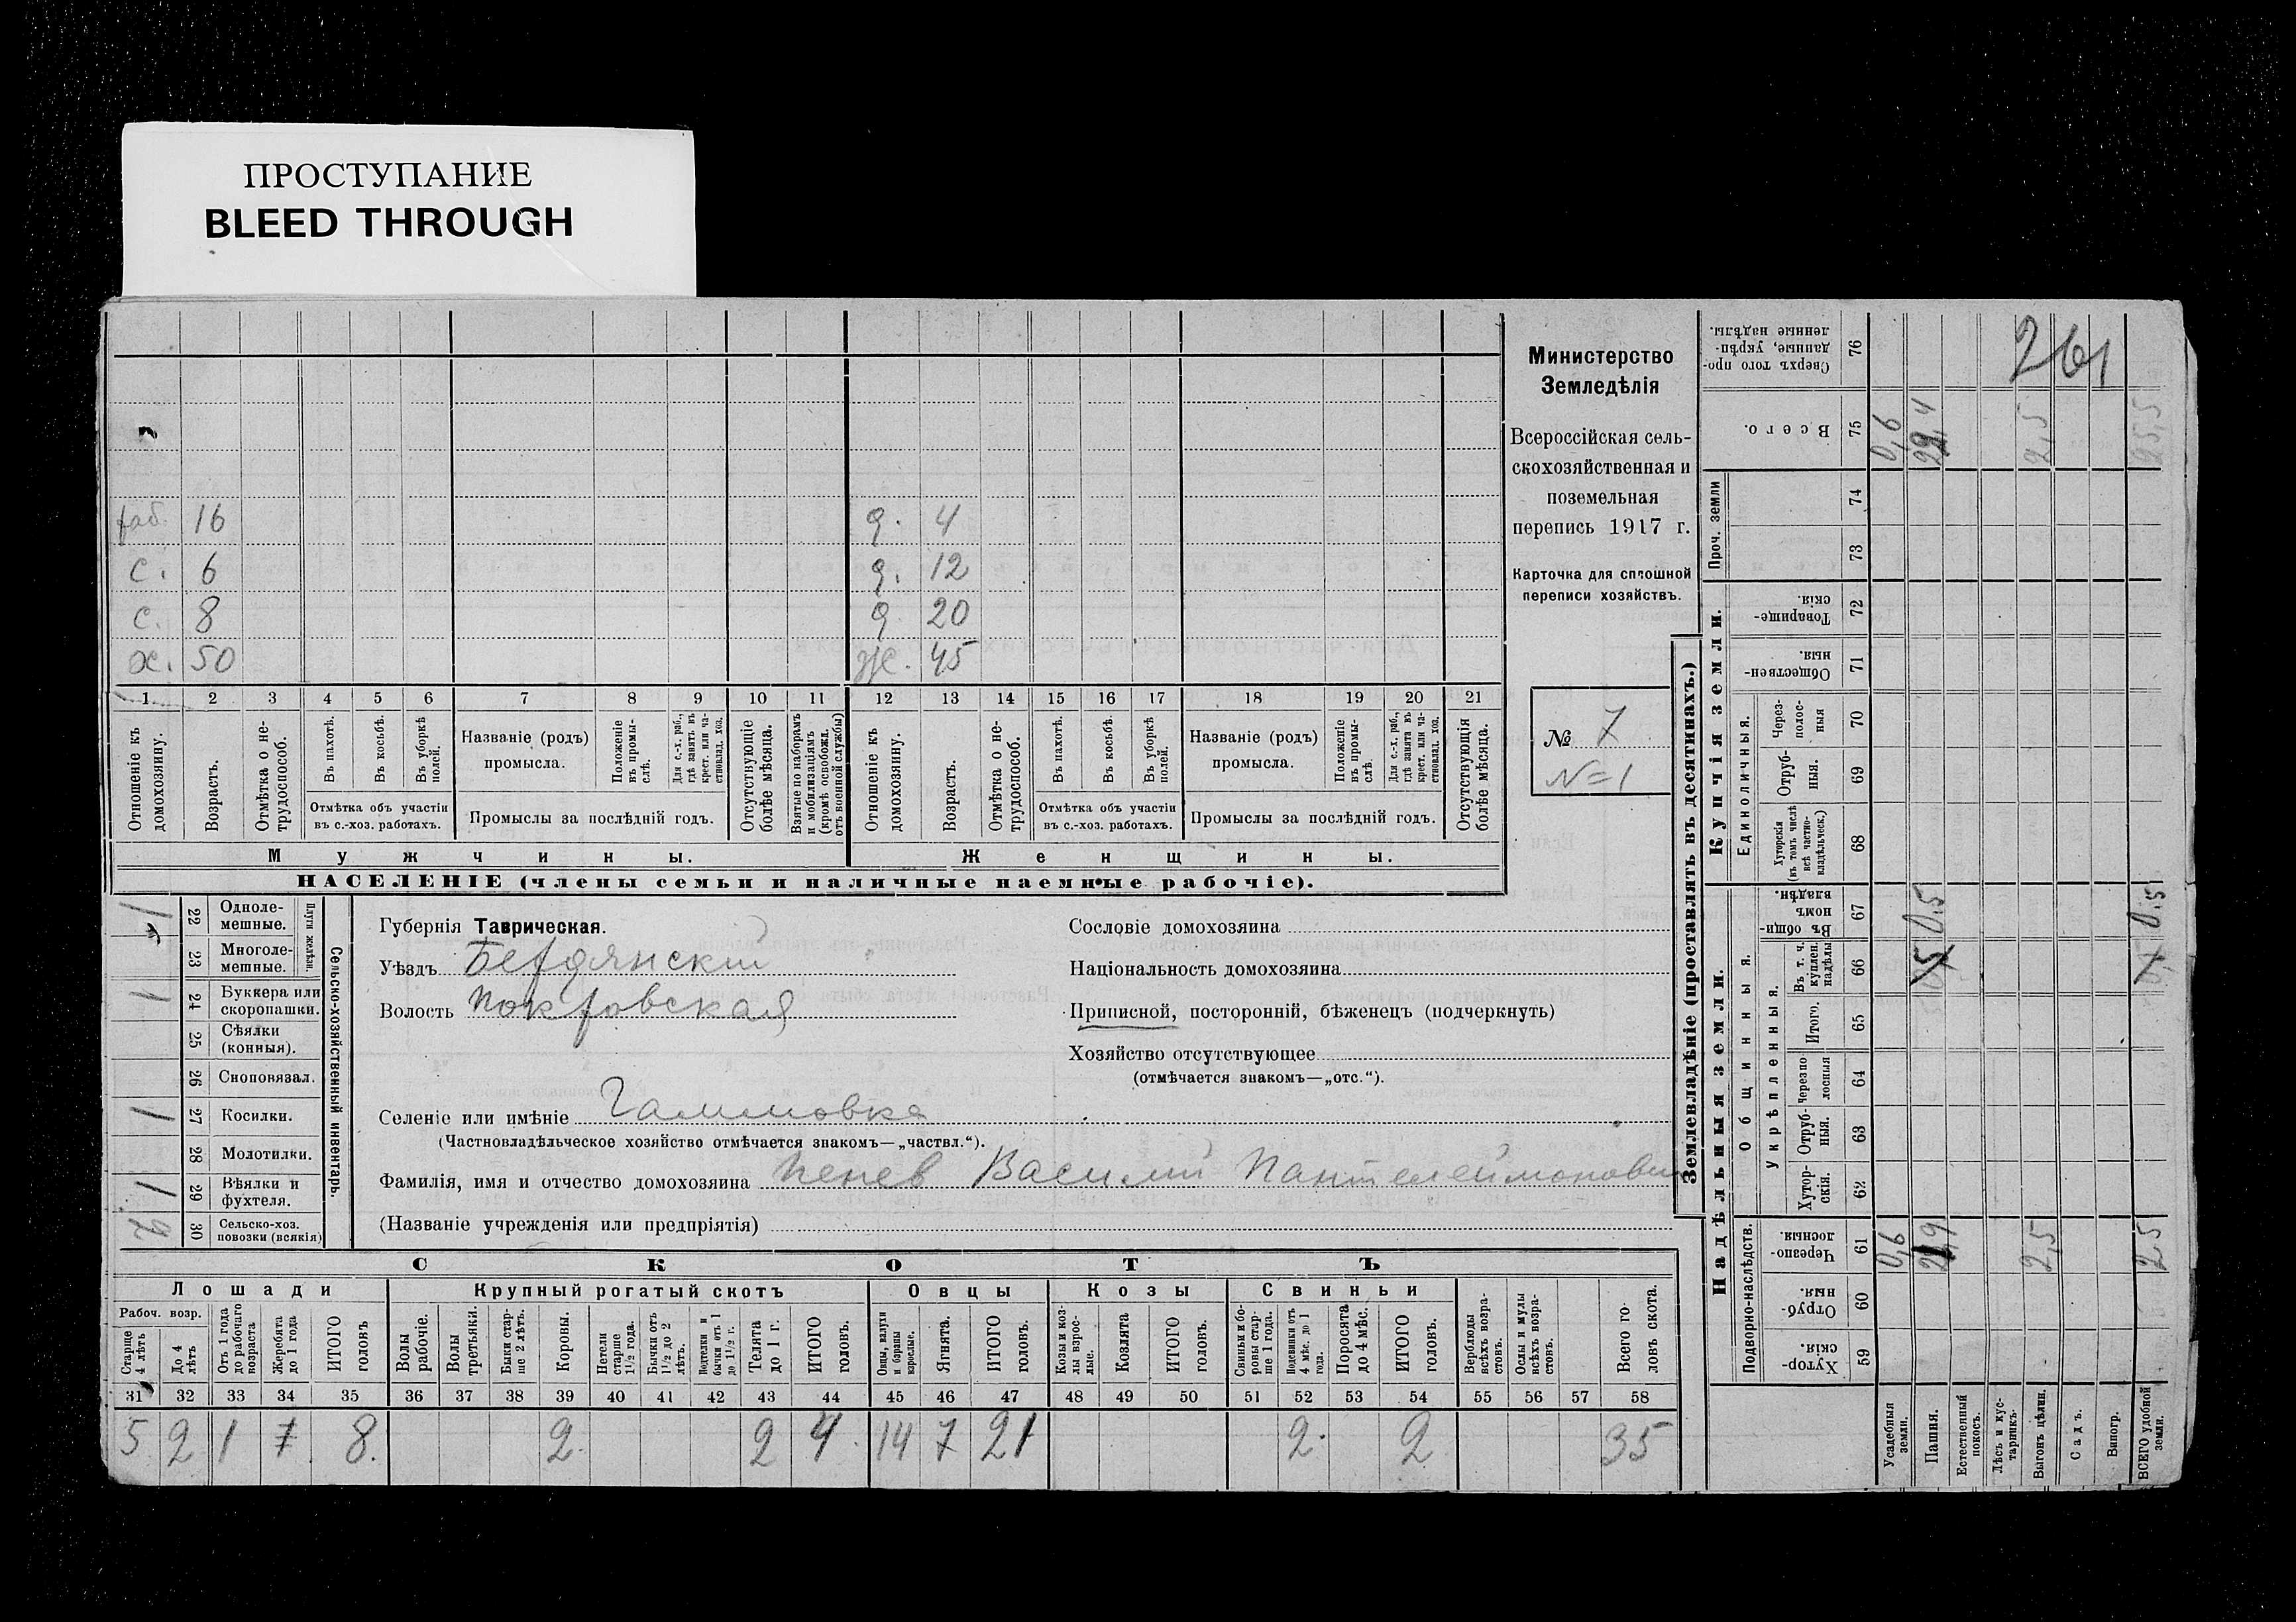 ПРОСТУПАНИЕ
BLEED THROUGH
раб. 16 д. 4
с. 6 д. 12
с. 8 д 20
х. 50 ж. 45
1. 2 3 4 5 6 7 8 9 10 11 12 13 14 15 16 17 18 19 20 21
Отношеніе къ домохозяину.
Возрастъ.
Отмѣтка о не-
трудоспособ.
Въ пахотѣ.
Въ косьбѣ.
Въ уборкѣ полей.
Отмѣтка объ участіи
въ с.-хоз. работахъ.
Названіе (родъ)
промысла.
Положеніе
въ промы-
слѣ.
Для с.-х. раб.,
гдѣ занятъ въ
крест. или ча-
стновлад. хоз.
Промыслы за послѣдній годъ.
Отсутствующіе
болѣе мѣсяца.
Взятые по наборамъ
и мобилизаціямъ
(кромѣ освобожд.
отъ военной службы)
Отношеніе къ
домохозяину.
Возрастъ.
Отмѣтка о не-
трудоспособ.
Въ пахотѣ.
Въ косьбѣ.
Въ уборкѣ
полей.
Отмѣтка объ участіи
въ с.-хоз. работахъ.
Названіе (родъ)
промысла.
Положеніе
въ промы-
слѣ.
Для с.-х. раб.,
гдѣ занята въ
крест. или ча-
стновлад. хоз.
Промыслы за послѣдній годъ.
Отсутствующія
болѣе мѣсяца.
Мужчины. Женщины.
НАСЕЛЕНІЕ (члены семьи и наличные наемные рабочіе).
Министерство
Земледѣлія
Всероссійская сель-
скохозяйственная и
поземельная
перепись 1917 г.
Карточка для сплошной
переписи хозяйствъ.
№ 7
N=1
22 Одноле-
мешные.
23 Многоле-
мешные.
Плуги желѣзн.
1 24 Буккера или
скоропашки.
25 Сѣялки
(конныя).
26 Сноповязал.
1 27 Косилки.
28 Молотилки.
1 29 Вѣялки и
фухтеля.
30 Сельско-хоз.
повозки (всякія)
Сельско-хозяйственный инвентарь.
Губернія Таврическая.
Уѣздъ Бердянскій
Волость Покровская
Селеніе или имѣніе
(Частновладѣльческое хозяйство отмѣчается знакомъ—„частвл.“).
Фамилія, имя и отчество домохозяина Пенев Василий Пантелеймонович
(Названіе учрежденія или предпріятія)
Сословіе домохозяина
Національность домохозяина
Приписной, посторонній, бѣженецъ (подчеркнуть)
Хозяйство отсутствующее
(отмѣчается знакомъ—„отс.“).
СКОТЪ
Лошади Крупный рогатый скотъ Овцы Козы Свиньи
Рабоч. возр.
Старше
4 лѣтъ
До 4
лѣтъ
Отъ 1 года
до рабочаго
возраста
Жеребята
до 1 года
ИТОГО
головъ
Волы
рабочіе.
Волы
третьяки.
Быки стар-
ше 2 лѣтъ.
Коровы.
Нетели
старше
1½ года.
Бычки отъ
1½ до 2
лѣтъ.
Подтелки и
бычки отъ 1
до 1½ г.
Телята
до 1 г.
ИТОГО
головъ.
Овцы, валухи
и бараны
взрослые.
Ягнята.
ИТОГО
головъ.
Козы и коз-
лы взрос-
лые.
Козлята
ИТОГО
головъ.
Свиньи и бо-
ровы стар-
ше 1 года.
Подсвинки отъ
4 мѣс. до 1
года.
Поросята
до 4 мѣс.
ИТОГО
головъ.
Верблюды
всѣхъ возра-
стовъ.
Ослы и мулы
всѣхъ возра-
стовъ.
Всего го
ловъ скота.
31 32 33 34 35 36 37 38 39 40 41 42 43 44 45 46 47 48 49 50 51 52 53 54 55 56 57 58
5 2 1 8. 2. 2 4. 14 7 21 2. 2 35
Землевладѣніе (проставлять въ десятинахъ.)
Надѣльныя земли. Купчія земли.
Подворно-наслѣдств.
Общинныя.
Укрѣпленныя.
Единоличныя.
Проч. земли
261
Сверхъ того про-
данные, укрѣп-
ленные надѣлы.
76
Всего.
75
0,6 2,5 25,5
74
73
Товарище-
скія.
72
Обществен-
ныя.
71
Через-
полос-
ныя
70
Отруб-
ныя.
69
Хуторскія
(въ томъ числѣ
всѣ частно-
владѣльческ.)
68
Въ общи-
номъ
владѣн.
67
0,5 0,5
Въ т. ч.
куплен.
надѣлы
66
Итого.
65
Черезпо
лосныя
64
Отруб-
ныя.
63
Хутор-
скія.
62
Черезпо-
лосныя.
61
0,6 2,5 25
Отруб-
ныя.
60
Хутор-
скія.
59
Усадебныя
земли.
Пашня.
Естественный
покосъ.
Лѣсъ и кус-
тарникъ.
Выгонъ цѣлин.
Садъ.
Виногр.
ВСЕГО удобной
земли.